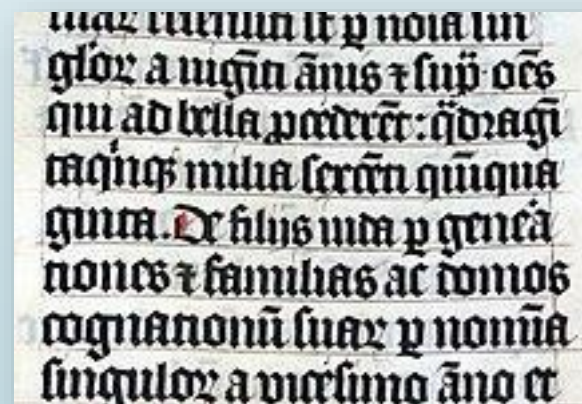 recensiti st ꝑ noia sin
gloꝝ a uigīti ānis ⁊ sup̄ · oēs
qui ad bella ꝓcederēt : qͣdragī
taqͥnqꝫ milia sexcēti qūiqua
ginta. De filijs iuda ꝑ geneͣa
tiones ⁊ familias ac domos
cognationū suaꝝ ꝑ nomīa
singuloꝝ a vicesimo āno et